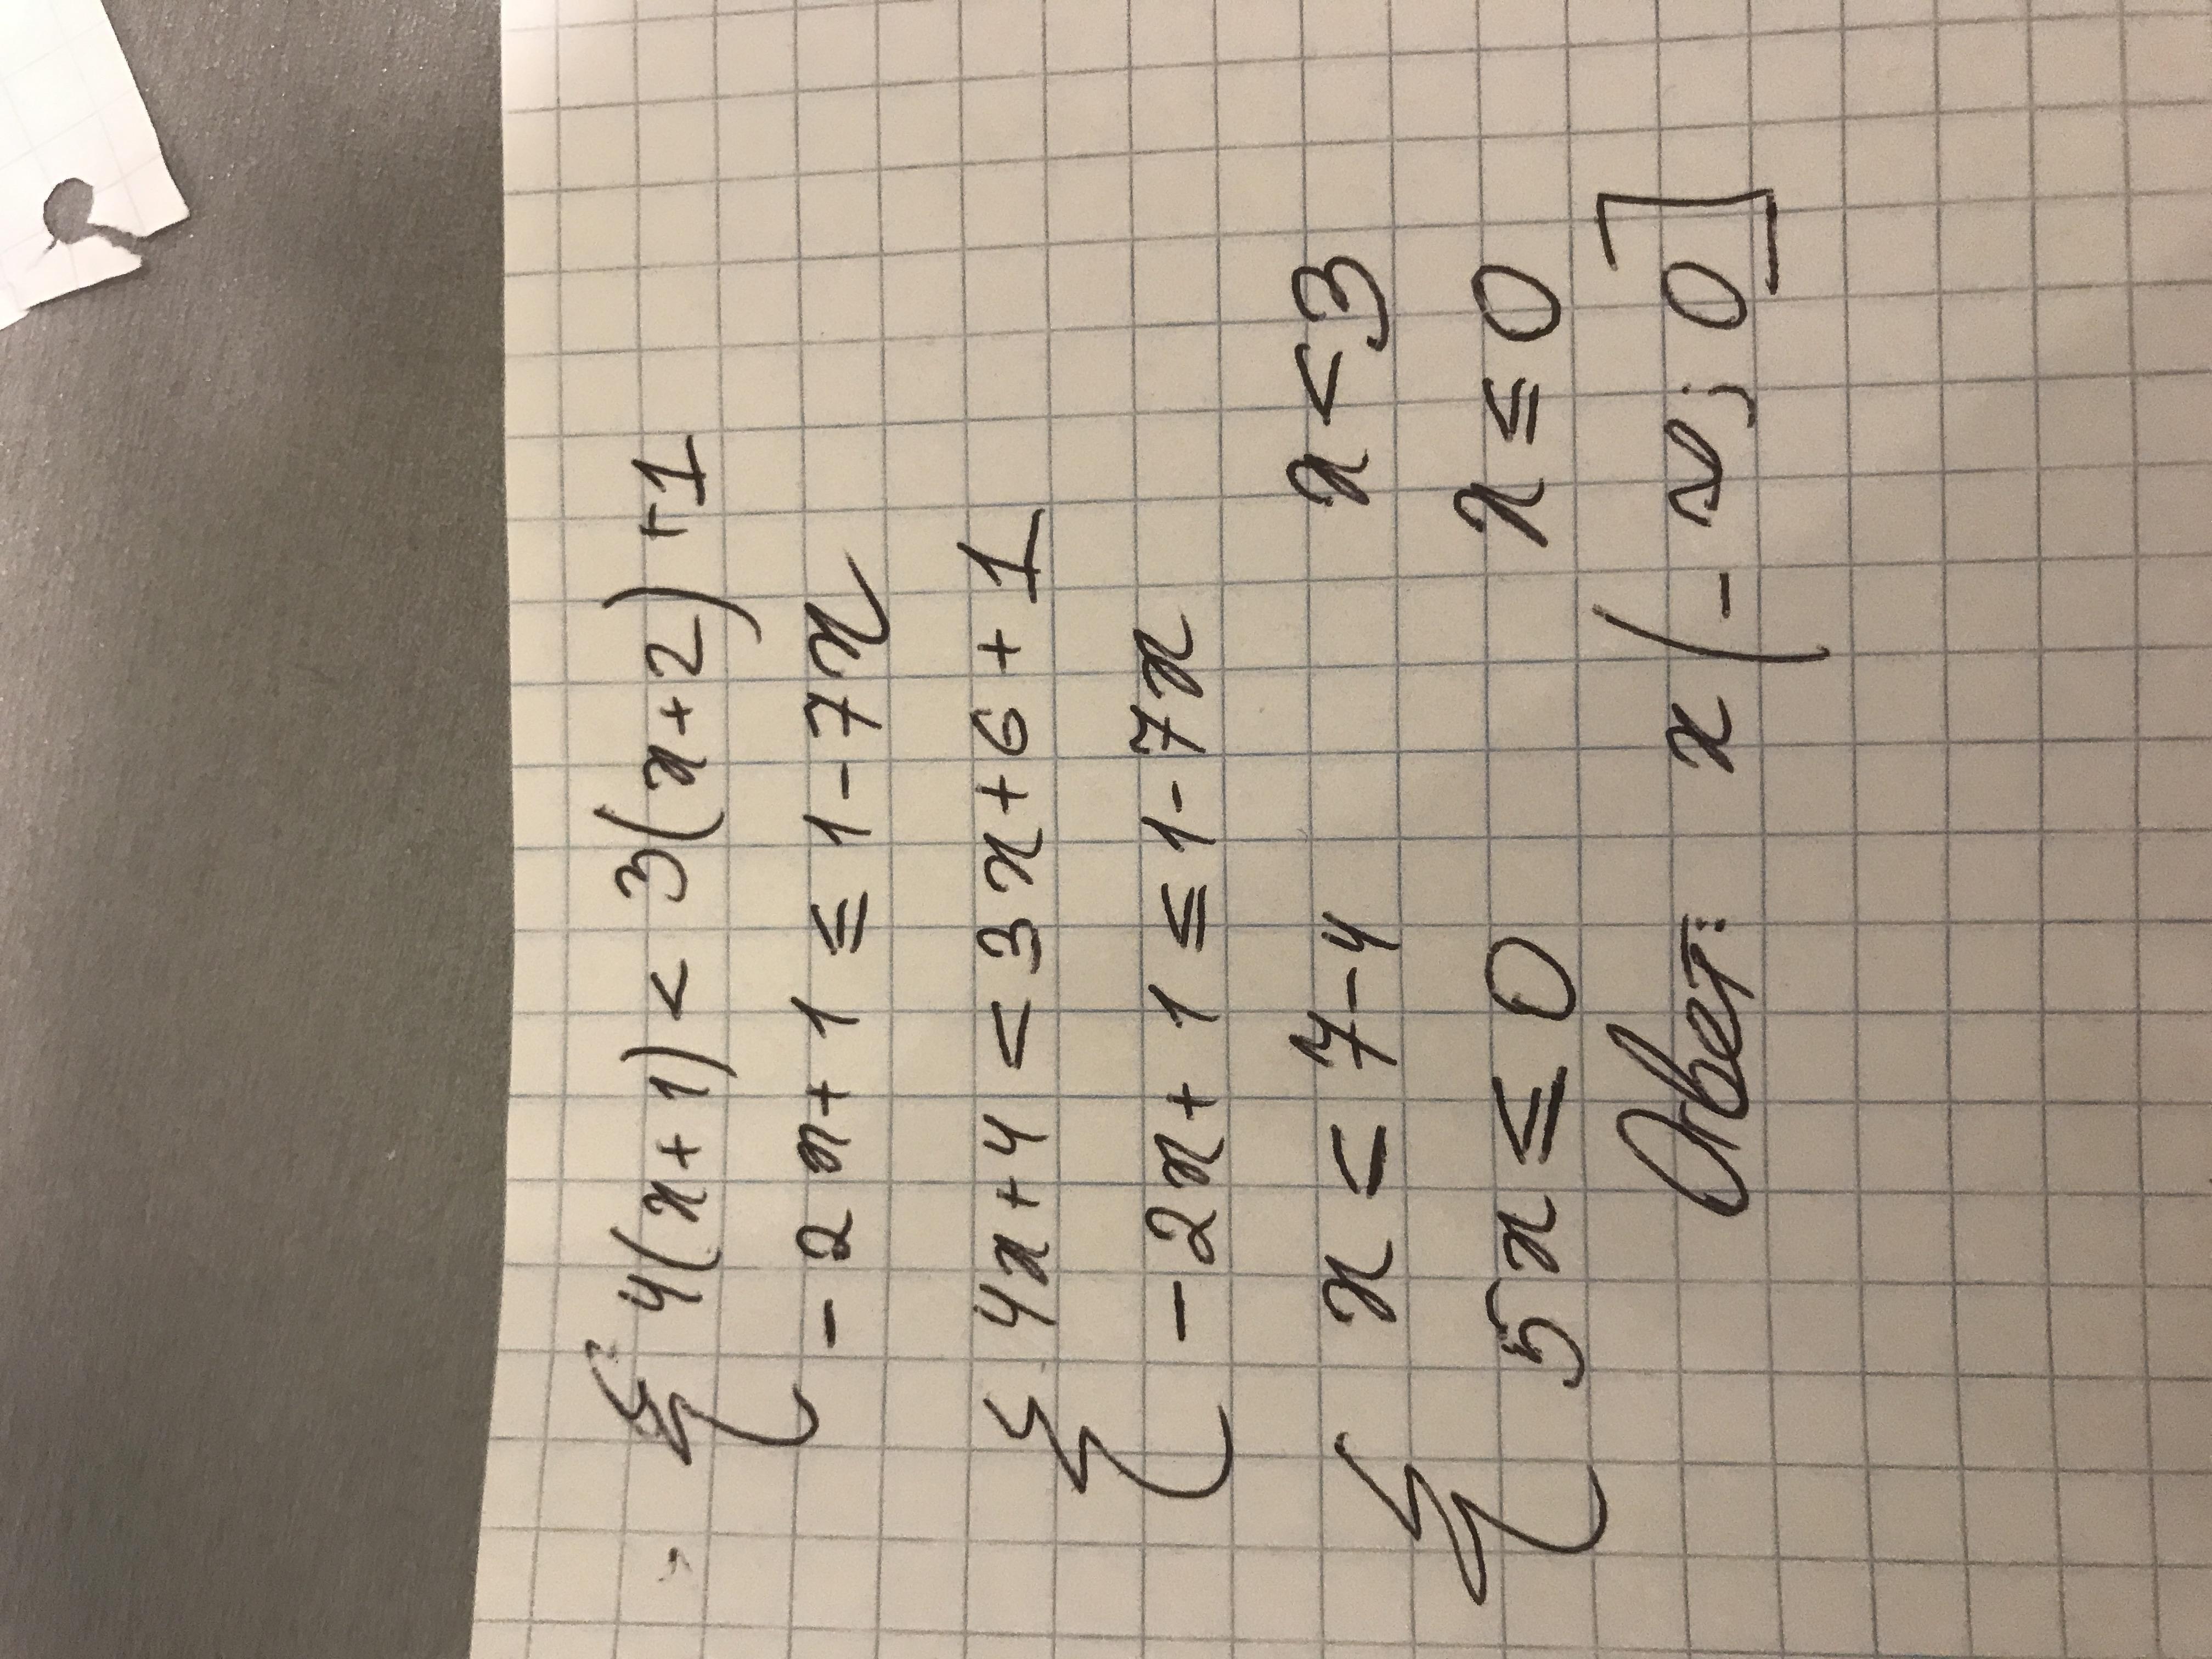 { 4(x+1) < 3(x+2)+1
-2x+1 ≤ 1-7x
{ 4x+4 < 3x+6+1
-2x+1 ≤ 1-7x
{ x < 7-4 x < 3
5x ≤ 0 x ≤ 0
Ответ: x (-∞; 0]